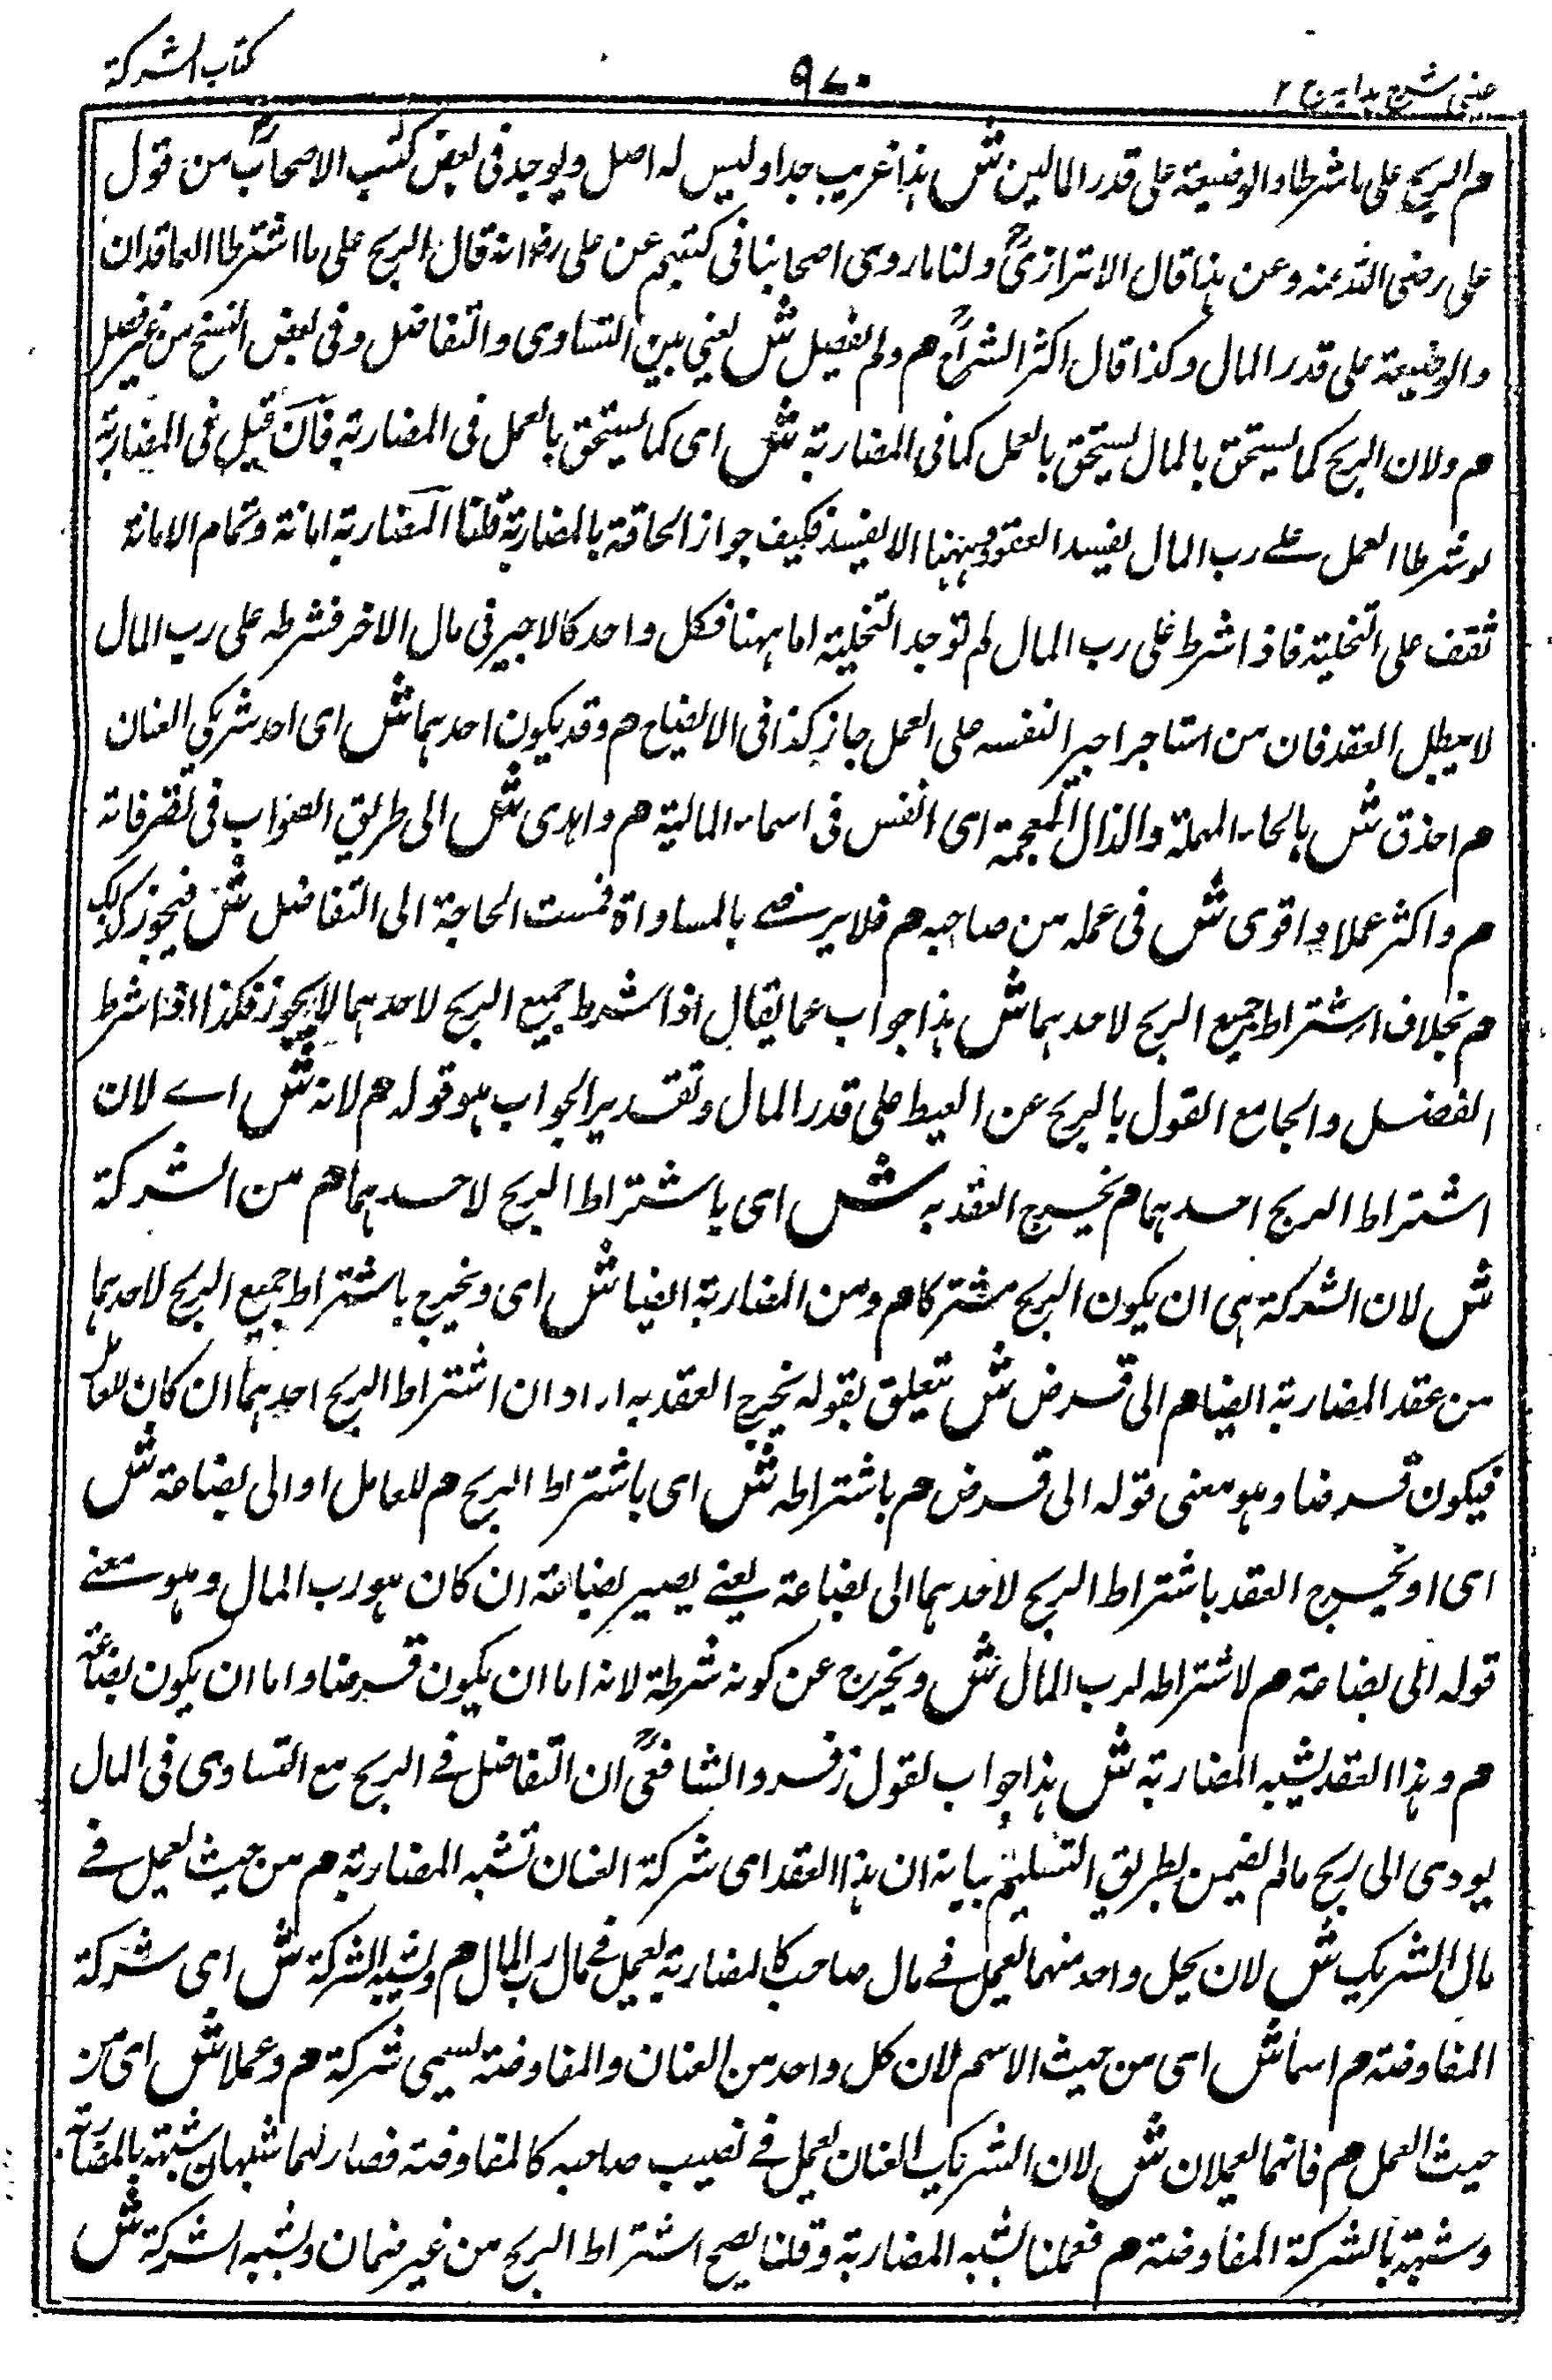 عینی شرح ہدایہ ج ۲
۹۷۰
کتاب الشرکة
م الربح علی ما شرطا والوضیعة علی قدر المالین ش هذا غریب جدا ولیس له اصل ویوجد فی بعض کتب الاصحابؒ من قول
علی رضی الله عنه وعن هذا قال الاترازیؒ ولنا ما روی اصحابنا فی کتبهم عن علی رض انه قال الربح علی ما اشترطا العاقدان
والوضیعة علی قدر المال وکذا قال اکثر الشراحؒ م ولم یفصل ش یعنی بین التساوی والتفاضل وفی بعض النسخ من غیر فصل
م ولان الربح کما یستحق بالمال یستحق بالعمل کما فی المضاربة ش ای کما یستحق بالعمل فی المضاربة فان قیل فی المضاربة
لو شرطا العمل علے رب المال یفسد العقد وههنا الا یفسد فکیف جواز الحاقة بالمضاربة قلنا المضاربة امانة وتمام الامانة
تقف علی التخلیة فاذا شرط علی رب المال لم توجد التخلیة اما ههنا فکل واحد کالاجیر فی مال الاخر فشرطه علی رب المال
لا یبطل العقد فان من استاجر اجیرا لنفسه علی العمل جاز کذا فی الایضاح م وقد یکون احدهما ش ای احد شریکی العنان
م احذق ش بالحاء المهملة والذال المعجمة ای انفس فی اسماء المالیة م واهدی ش الی طریق الصواب فی تصرفاته
م واکثر عملا واقوی ش فی عمله من صاحبه م فلا یرضے بالمساواة فمست الحاجة الی التفاضل ش فیجوز کذلک
م بخلاف اشتراط جمیع الربح لاحدهما ش هذا جواب عما یقال اذا شرط جمیع الربح لاحدهما لا یجوز فکذا اذا شرط
الفضل والجامع القول بالربح عن العیط علی قدر المال وتقدیر الجواب هو قوله م لانه ش اے لان
اشتراط الربح احدهما م یخرج العقد به ش ای باشتراط الربح لاحدهما م من الشرکة
ش لان الشرکة هی ان یکون الربح مشترکا م ومن المضاربة ایضا ش ای ویخرج باشتراط جمیع الربح لاحدهما
من عقد المضاربة ایضا م الی قرض ش یتعلق بقوله یخرج العقد به اراد ان اشتراط الربح احدهما ان کان للعامل
فیکون قرضا وهو معنی قوله الی قرض م باشتراطه ش ای باشتراط الربح م للعامل او الی بضاعة ش
ای او یخرج العقد باشتراط الربح لاحدهما الی بضاعة یعنے یصیر بضاعة ان کان هو رب المال وهو معنے
قوله الی بضاعة م لاشتراطه لرب المال ش ویخرج عن کونه شرطة لانه اما ان یکون قرضا واما ان یکون بضاعة
م وهذا العقد یشبه المضاربة ش هذا جواب لقول زفر والشافعیؒ ان التفاضل فے الربح مع التساوی فی المال
یودی الی ربح ما لم یضمن بطریق التسلیم بیانه ان هذا العقد ای شرکة العنان تشبه المضاربة م من حیث یعمل فے
مال الشریک ش لان یحل واحد منهما یعمل فے مال صاحب کالمضاربة یعمل فے مال رب المال م ویشبه الشرکة ش ای شرکة
المفاوضة م اسما ش ای من حیث الاسم لان کل واحد من العنان والمفاوضة یسمی شرکة م وعملا ش ای من
حیث العمل م فانهما یعملان ش لان الشریک العنان یعمل فے نصیب صاحبه کالمفاوضة فصار لهما شبهان شبهة بالمضاربة
وشبهة بالشرکة المفاوضة م فعملنا بشبه المضاربة وقلنا یصح اشتراط الربح من غیر ضمان ویشبه الشرکة ش